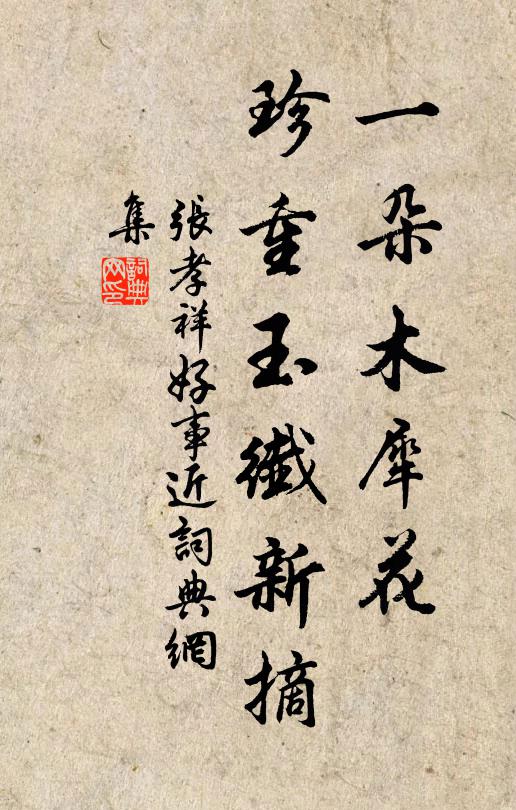 一朵木犀花
珍重玉纖新摘
張孝祥好事近詞典網
集
詞典
网印